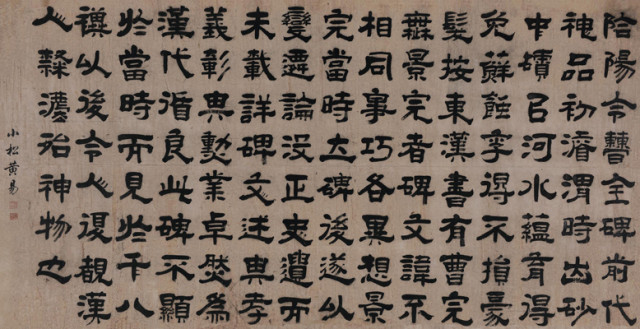 郃陽令曹全碑前代
神品初濬渭時出砂
中壙㠯河水蘊育得
免蘚蝕幸得不損豪
髮按東漢書有曹完
無景完者碑文諱不
相同事巧各異想景
完當時立碑後遂以
變遷論沒正史遺而
未載詳碑文述典孝
義彰典勳業卓然為
漢代循良此碑不顯
於當時而見於千八
禩以後令人復觀漢
人隸灋殆神物也
小松黃易